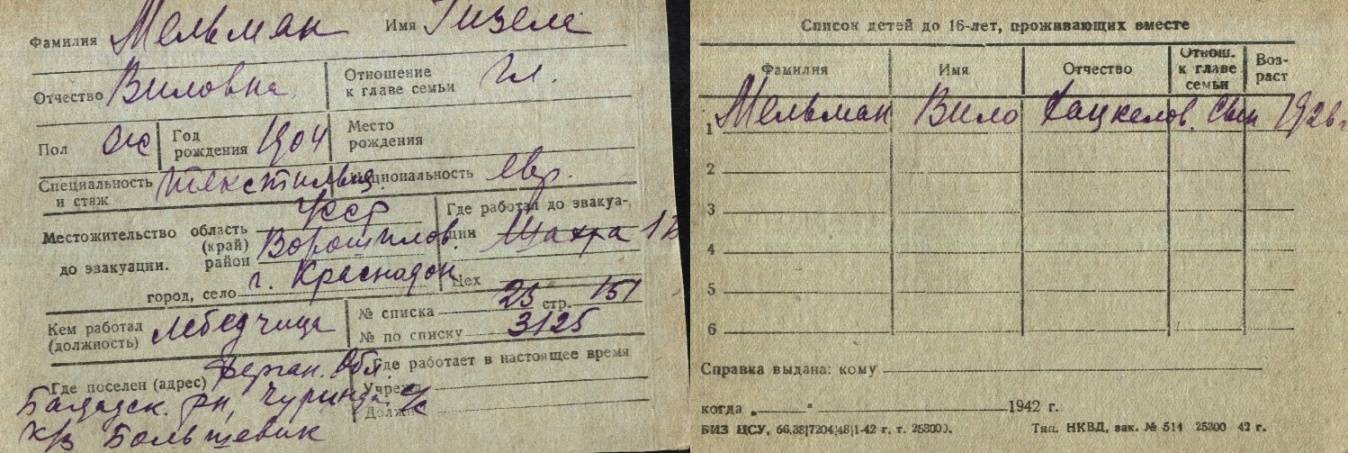 Фамилия Мельман Имя Гизела
Отчество Виловна Отношение к главе семьи Гл.
Пол Ж Год рождения 1904 Место рождения
Специальность и стаж Национальность евр.
Местожительство до эвакуации. область (край) УССР
район Ворошилов.
город, село г. Краснодон
Где работал до эвакуации Шахта 1
Цех
Кем работал (должность) лебедчица
№ списка 23 стр. 151
№ по списку 3125
Где поселен (адрес) Ферган. Обл.
Багдадск. рн, Чуринда с/с
к/з Большевик
Где работает в настоящее время
Учрежд
Должн
Список детей до 16-лет, проживающих вместе
Фамилия Имя Отчество Отнош. к главе семьи Возраст
1 Мельман Вило Хацкелов. Сын 1926 г
2
3
4
5
6
Справка выдана: кому
когда „ “ 1942 г.
БИЗ ЦСУ, 66,38|7204|48|1-42 г. т. 253000. Тип. НКВД, зак. № 514 25300 42 г.